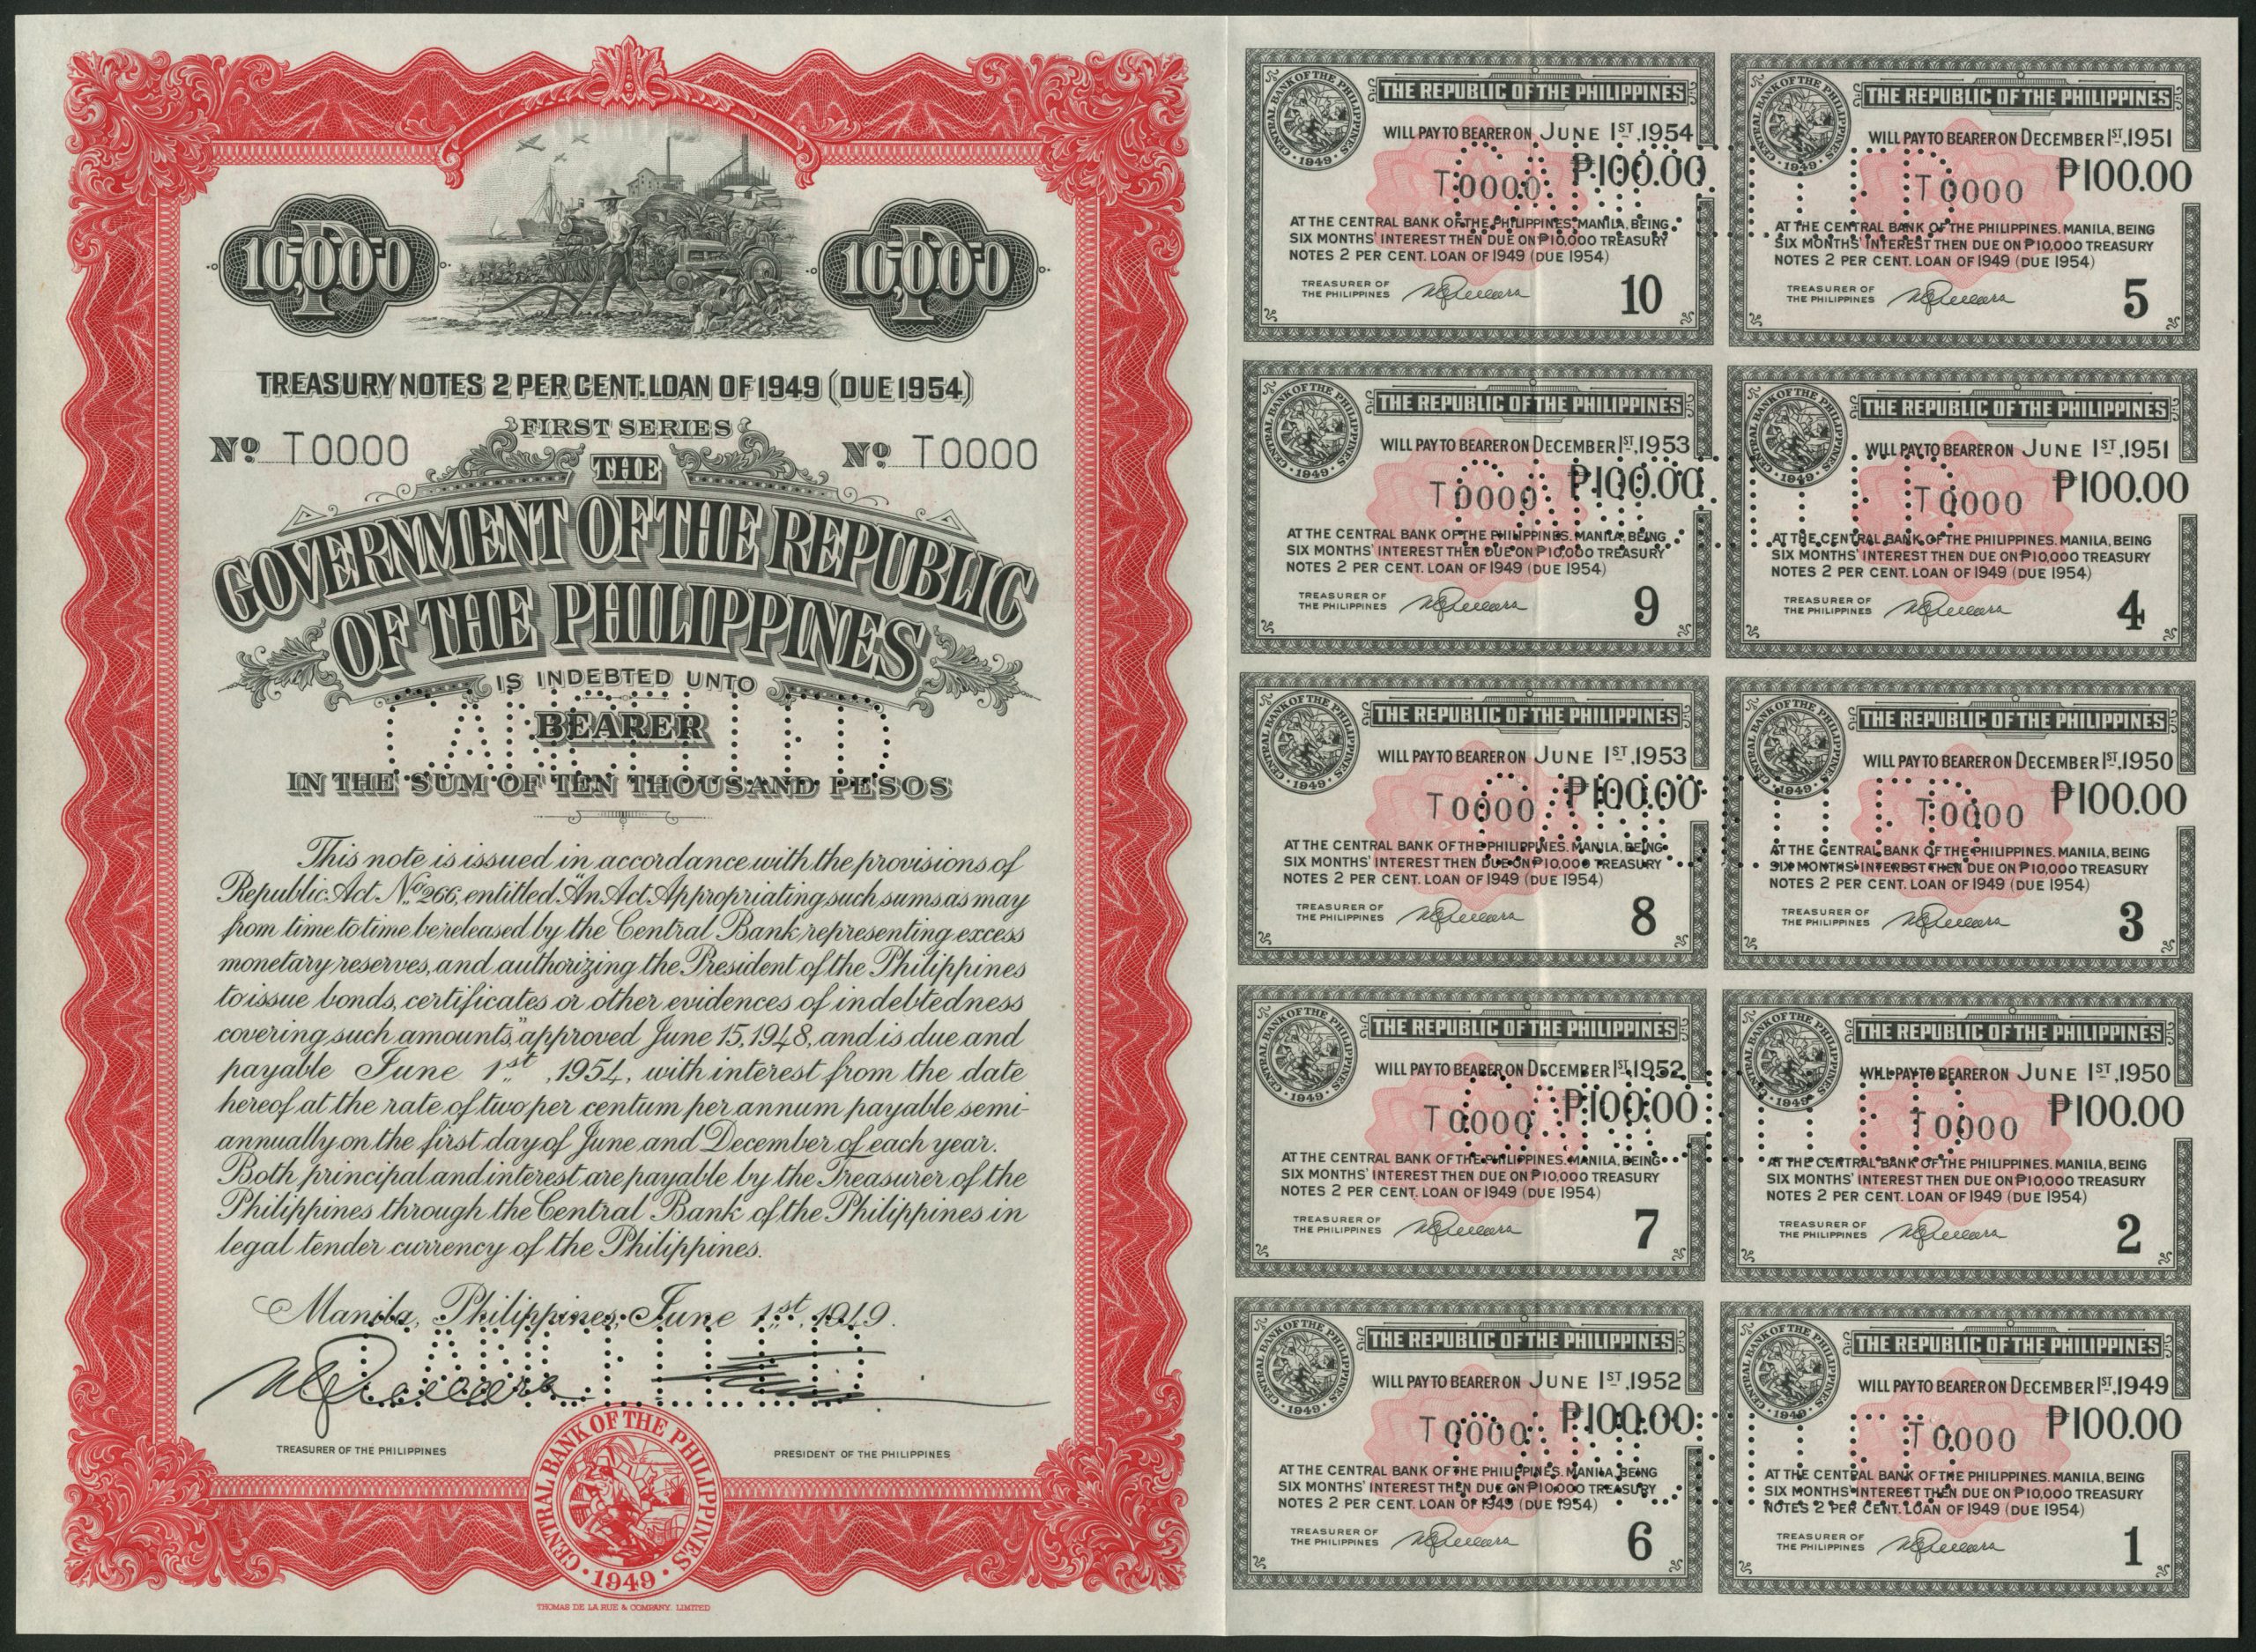 10,000
10,000
TREASURY NOTES 2 PER CENT. LOAN OF 1949 (DUE 1954)
FIRST SERIES
Nº T0000
Nº T0000
THE
GOVERNMENT OF THE REPUBLIC
OF THE PHILIPPINES
IS INDEBTED UNTO
BEARER
CANCELLED
IN THE SUM OF TEN THOUSAND PESOS
This note is issued in accordance with the provisions of
Republic Act No. 266, entitled "An Act Appropriating such sums as may
from time to time be released by the Central Bank representing excess
monetary reserves, and authorizing the President of the Philippines
to issue bonds, certificates or other evidences of indebtedness
covering such amounts," approved June 15, 1948, and is due and
payable June 1st, 1954, with interest from the date
hereof at the rate of two per centum per annum payable semi-
annually on the first day of June and December of each year.
Both principal and interest are payable by the Treasurer of the
Philippines through the Central Bank of the Philippines in
legal tender currency of the Philippines.
Manila, Philippines, June 1st, 1949.
CANCELLED
TREASURER OF THE PHILIPPINES
PRESIDENT OF THE PHILIPPINES
CENTRAL BANK OF THE PHILIPPINES
· 1949 ·
THOMAS DE LA RUE & COMPANY, LIMITED
CENTRAL BANK OF THE PHILIPPINES
· 1949 ·
THE REPUBLIC OF THE PHILIPPINES
WILL PAY TO BEARER ON JUNE 1ST, 1954
₱100.00
T0000
AT THE CENTRAL BANK OF THE PHILIPPINES, MANILA, BEING
SIX MONTHS' INTEREST THEN DUE ON ₱10,000 TREASURY
NOTES 2 PER CENT. LOAN OF 1949 (DUE 1954)
TREASURER OF
THE PHILIPPINES
10
CENTRAL BANK OF THE PHILIPPINES
· 1949 ·
THE REPUBLIC OF THE PHILIPPINES
WILL PAY TO BEARER ON DECEMBER 1ST, 1951
₱100.00
T0000
AT THE CENTRAL BANK OF THE PHILIPPINES. MANILA, BEING
SIX MONTHS' INTEREST THEN DUE ON ₱10,000 TREASURY
NOTES 2 PER CENT. LOAN OF 1949 (DUE 1954)
TREASURER OF
THE PHILIPPINES
5
CANCELLED
CENTRAL BANK OF THE PHILIPPINES
· 1949 ·
THE REPUBLIC OF THE PHILIPPINES
WILL PAY TO BEARER ON DECEMBER 1ST, 1953
₱100.00
T0000
AT THE CENTRAL BANK OF THE PHILIPPINES. MANILA, BEING
SIX MONTHS' INTEREST THEN DUE ON ₱10,000 TREASURY
NOTES 2 PER CENT. LOAN OF 1949 (DUE 1954)
TREASURER OF
THE PHILIPPINES
9
CENTRAL BANK OF THE PHILIPPINES
· 1949 ·
THE REPUBLIC OF THE PHILIPPINES
WILL PAY TO BEARER ON JUNE 1ST, 1951
₱100.00
T0000
AT THE CENTRAL BANK OF THE PHILIPPINES. MANILA, BEING
SIX MONTHS' INTEREST THEN DUE ON ₱10,000 TREASURY
NOTES 2 PER CENT. LOAN OF 1949 (DUE 1954)
TREASURER OF
THE PHILIPPINES
4
CANCELLED
CENTRAL BANK OF THE PHILIPPINES
· 1949 ·
THE REPUBLIC OF THE PHILIPPINES
WILL PAY TO BEARER ON JUNE 1ST, 1953
₱100.00
T0000
AT THE CENTRAL BANK OF THE PHILIPPINES. MANILA, BEING
SIX MONTHS' INTEREST THEN DUE ON ₱10,000 TREASURY
NOTES 2 PER CENT. LOAN OF 1949 (DUE 1954)
TREASURER OF
THE PHILIPPINES
8
CENTRAL BANK OF THE PHILIPPINES
· 1949 ·
THE REPUBLIC OF THE PHILIPPINES
WILL PAY TO BEARER ON DECEMBER 1ST, 1950
₱100.00
T0000
AT THE CENTRAL BANK OF THE PHILIPPINES. MANILA, BEING
SIX MONTHS' INTEREST THEN DUE ON ₱10,000 TREASURY
NOTES 2 PER CENT. LOAN OF 1949 (DUE 1954)
TREASURER OF
THE PHILIPPINES
3
CANCELLED
CENTRAL BANK OF THE PHILIPPINES
· 1949 ·
THE REPUBLIC OF THE PHILIPPINES
WILL PAY TO BEARER ON DECEMBER 1ST, 1952
₱100.00
T0000
AT THE CENTRAL BANK OF THE PHILIPPINES. MANILA, BEING
SIX MONTHS' INTEREST THEN DUE ON ₱10,000 TREASURY
NOTES 2 PER CENT. LOAN OF 1949 (DUE 1954)
TREASURER OF
THE PHILIPPINES
7
CENTRAL BANK OF THE PHILIPPINES
· 1949 ·
THE REPUBLIC OF THE PHILIPPINES
WILL PAY TO BEARER ON JUNE 1ST, 1950
₱100.00
T0000
AT THE CENTRAL BANK OF THE PHILIPPINES. MANILA, BEING
SIX MONTHS' INTEREST THEN DUE ON ₱10,000 TREASURY
NOTES 2 PER CENT. LOAN OF 1949 (DUE 1954)
TREASURER OF
THE PHILIPPINES
2
CANCELLED
CENTRAL BANK OF THE PHILIPPINES
· 1949 ·
THE REPUBLIC OF THE PHILIPPINES
WILL PAY TO BEARER ON JUNE 1ST, 1952
₱100.00
T0000
AT THE CENTRAL BANK OF THE PHILIPPINES. MANILA, BEING
SIX MONTHS' INTEREST THEN DUE ON ₱10,000 TREASURY
NOTES 2 PER CENT. LOAN OF 1949 (DUE 1954)
TREASURER OF
THE PHILIPPINES
6
CENTRAL BANK OF THE PHILIPPINES
· 1949 ·
THE REPUBLIC OF THE PHILIPPINES
WILL PAY TO BEARER ON DECEMBER 1ST, 1949
₱100.00
T0000
AT THE CENTRAL BANK OF THE PHILIPPINES. MANILA, BEING
SIX MONTHS' INTEREST THEN DUE ON ₱10,000 TREASURY
NOTES 2 PER CENT. LOAN OF 1949 (DUE 1954)
TREASURER OF
THE PHILIPPINES
1
CANCELLED